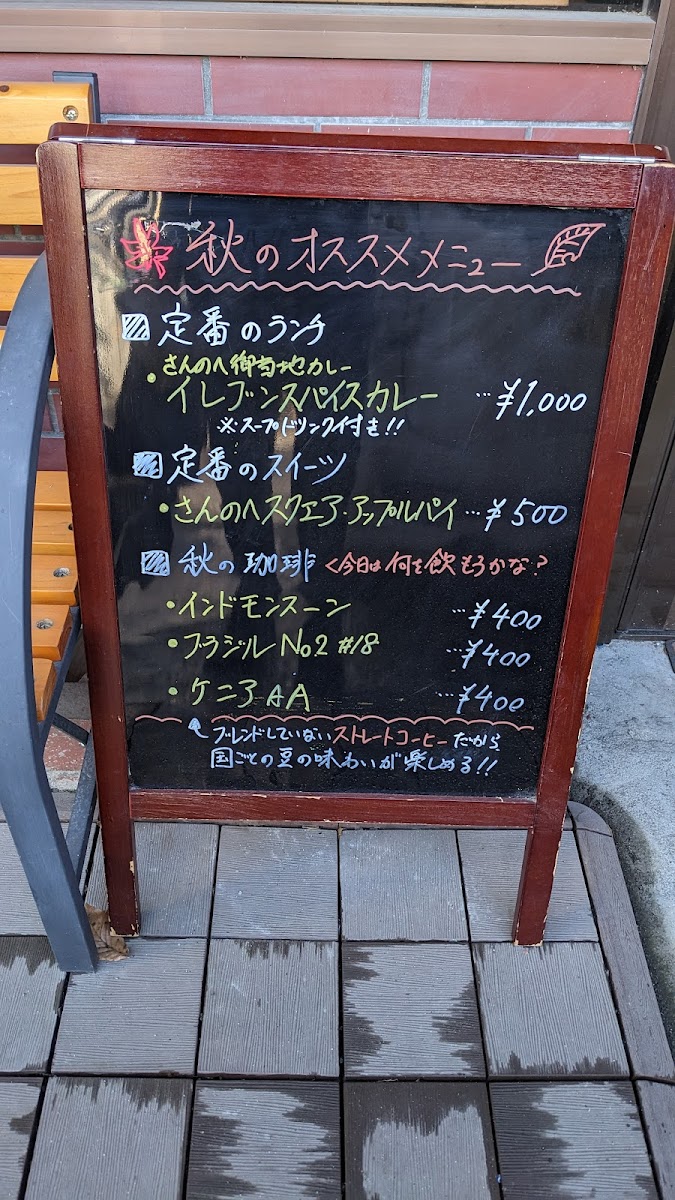 秋のオススメメニュー
定番のランチ
さんのへ御当地カレー
・イレブンスパイスカレー …¥1,000
※スープドリンク付き!!
定番のスイーツ
・さんのへスクエア・アップルパイ …¥500
秋の珈琲 <今日は何を飲もうかな?
・インドモンスーン …¥400
・ブラジルNo2 #18 …¥400
・ケニアAA …¥400
ブレンドしていないストレートコーヒーだから
国ごとの豆の味わいが楽しめる!!